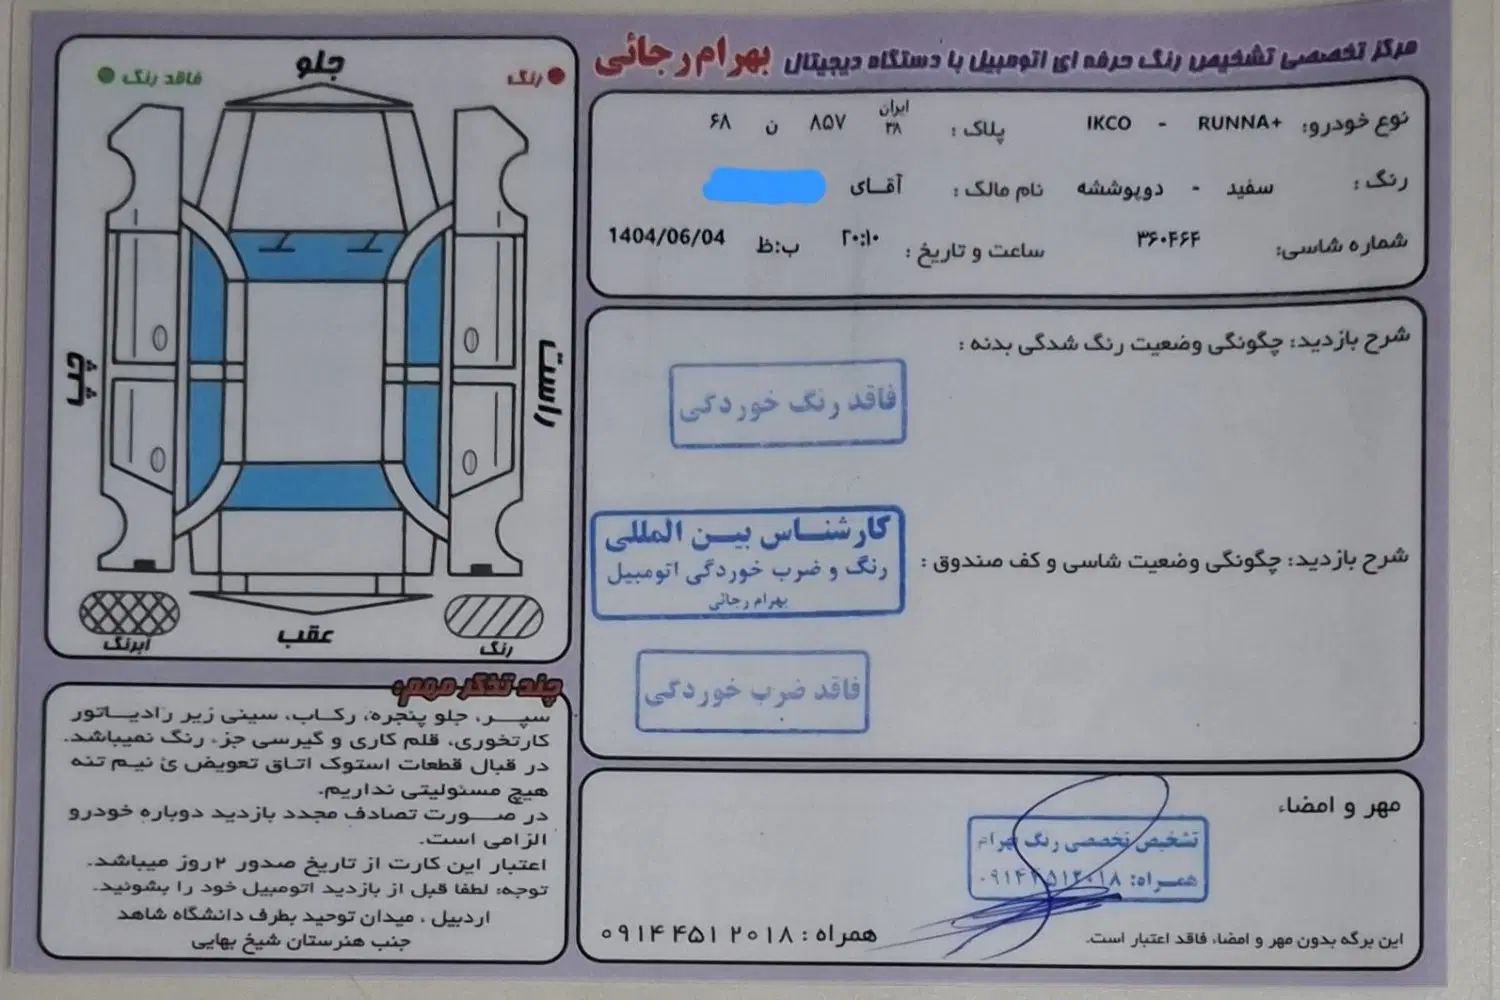 مرکز تخصصی تشخیص رنگ حرفه ای اتومبیل با دستگاه دیجیتال بهرام رجائی
نوع خودرو: RUNNA+ - IKCO پلاک : ایران ۳۸ ۸۵۷ ن ۶۸
رنگ : سفید - دوپوششه نام مالک : آقـای
شماره شاسی: ۳۶۰۴۶۴ ساعت و تاریخ : ۲۰:۱۰ ب:ظ 1404/06/04
شرح بازدید: چگونگی وضعیت رنگ شدگی بدنه :
فاقد رنگ خوردگی
شرح بازدید: چگونگی وضعیت شاسی و کف صندوق :
کارشنـاس بیـن المللی
رنگ و ضرب خوردگی اتومبیل
بهرام رجائی
فاقد ضرب خوردگی
مهر و امضاء
تشخیص تخصصی رنگ بهرام
همـراه: ۰۹۱۴۴۵۱۲۰۱۸
همراه : ۰۹۱۴ ۴۵۱ ۲۰۱۸
این برگه بدون مهر و امضا، فاقد اعتبار است.
رنگ
فاقد رنگ
جلو
راست
چپ
عقب
رنگ
آبرنگ
چند تذکر مهم:
سپـر، جلو پنجره، رکـاب، سینی زیر رادیـاتور
کارتخوری، قلم کاری و گیرسی جزء رنگ نمیباشد.
در قبال قطعات استوک اتـاق تعویض ئ نیـم تنه
هیچ مسئولیتی نداریم.
در صـورت تصادف مجدد بازدید دوباره خودرو
الزامی است.
اعتبار این کارت از تاریخ صدور ۲روز میباشد.
توجه: لطفا قبل از بازدید اتومبیل خود را بشوئید.
اردبیل ، میدان توحید بطرف دانشگاه شاهد
جنب هنرستان شیخ بهایی